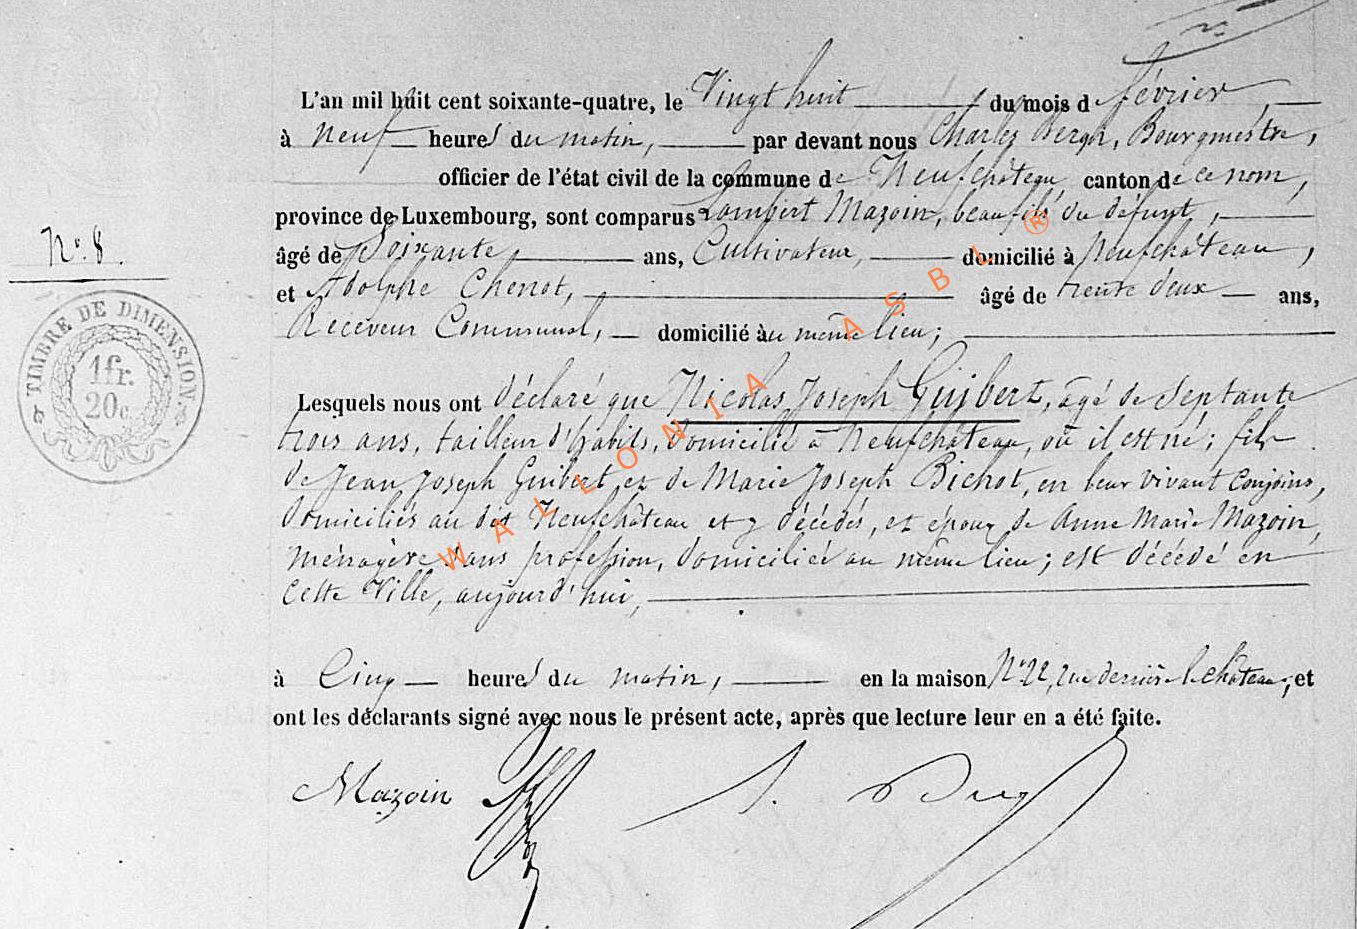 L'an mil huit cent soixante-quatre, le Vingt huit du mois d février
à neuf heures du matin, par devant nous Charles Bergh, Bourgmestre,
officier de l'état civil de la commune de Neufchâteau, canton de ce nom,
province de Luxembourg, sont comparus Lambert Mazoin, beau fils du défunt,
N°. 8.
âgé de Soixante ans, Cultivateur, domicilié à Neufchâteau,
et Adolphe Chenot, âgé de trente deux ans,
Receveur Communal, domicilié au même lieu;
TIMBRE DE DIMENSION.
1fr.
20c.
Lesquels nous ont déclaré que Nicolas Joseph Guibert, âgé de Septante
trois ans, tailleur d'habits, domicilié à Neufchâteau, où il est né; fils
de Jean Joseph Guibert, et de Marie Joseph Bichot, en leur vivant Conjoins,
domiciliés au dit Neufchâteau et y décédés, et époux de Anne Marie Mazoin,
ménagère sans profession, domiciliée au même lieu; est décédé en
cette Ville, aujourd'hui,
à Cinq heures du matin, en la maison N° 22, rue derrière le château, et
ont les déclarants signé avec nous le présent acte, après que lecture leur en a été faite.
Mazoin
WALLONIA ASBL ®